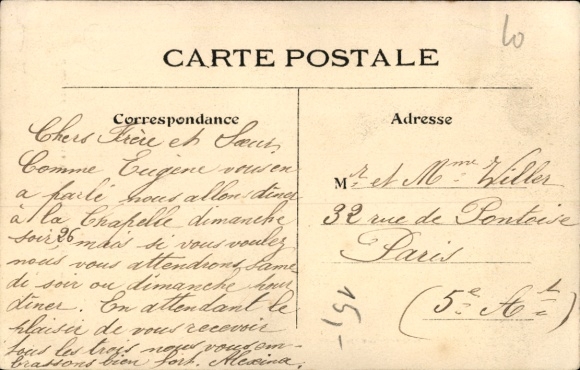 10
CARTE POSTALE
Correspondance
Chers Frère et Sœur,
Comme Eugène vous en
a parlé nous allons dîner
à la Chapelle dimanche
soir 26 mais si vous voulez
nous vous attendrons same
di soir ou dimanche pour
dîner. En attendant le
plaisir de vous recevoir
tous les trois nous vous em-
brassons bien fort. Alexina.
Adresse
Mr et Mme Willer
32 rue de Pontoise
Paris
(5e At)
15,-